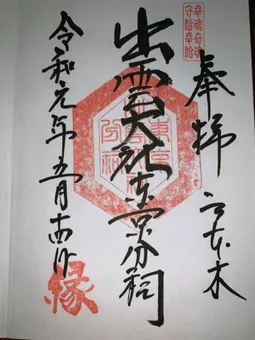 幸魂奇魂
守給幸給
奉拝 六本木
出雲大社東京分祠
東京
分祠
令和元年五月十四日
縁